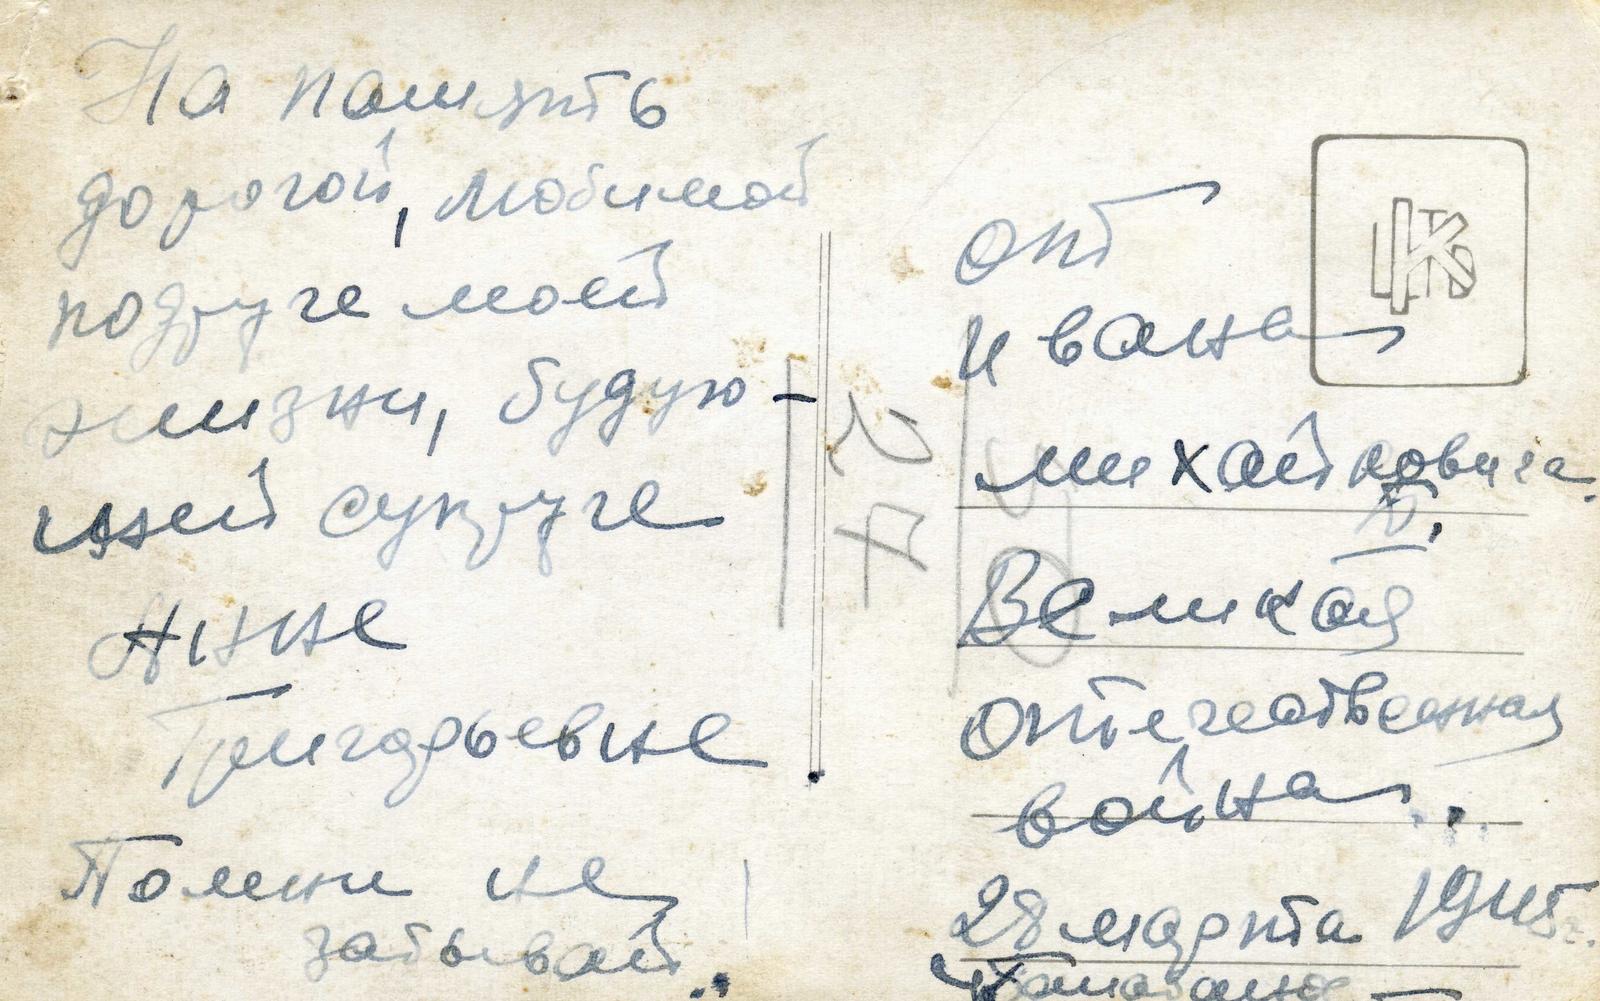 На память
дорогой, любимой
подруге моей
жизни, будую-
щей супруге
Анне
Григорьевне
Помни не
забывай.
от
Ивана
Михайловича.
Великая
Отечественная
война..
28 марта 1945 г.